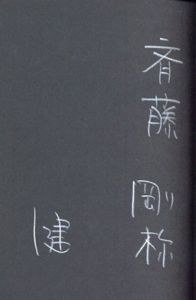 斉藤 剛祢
健